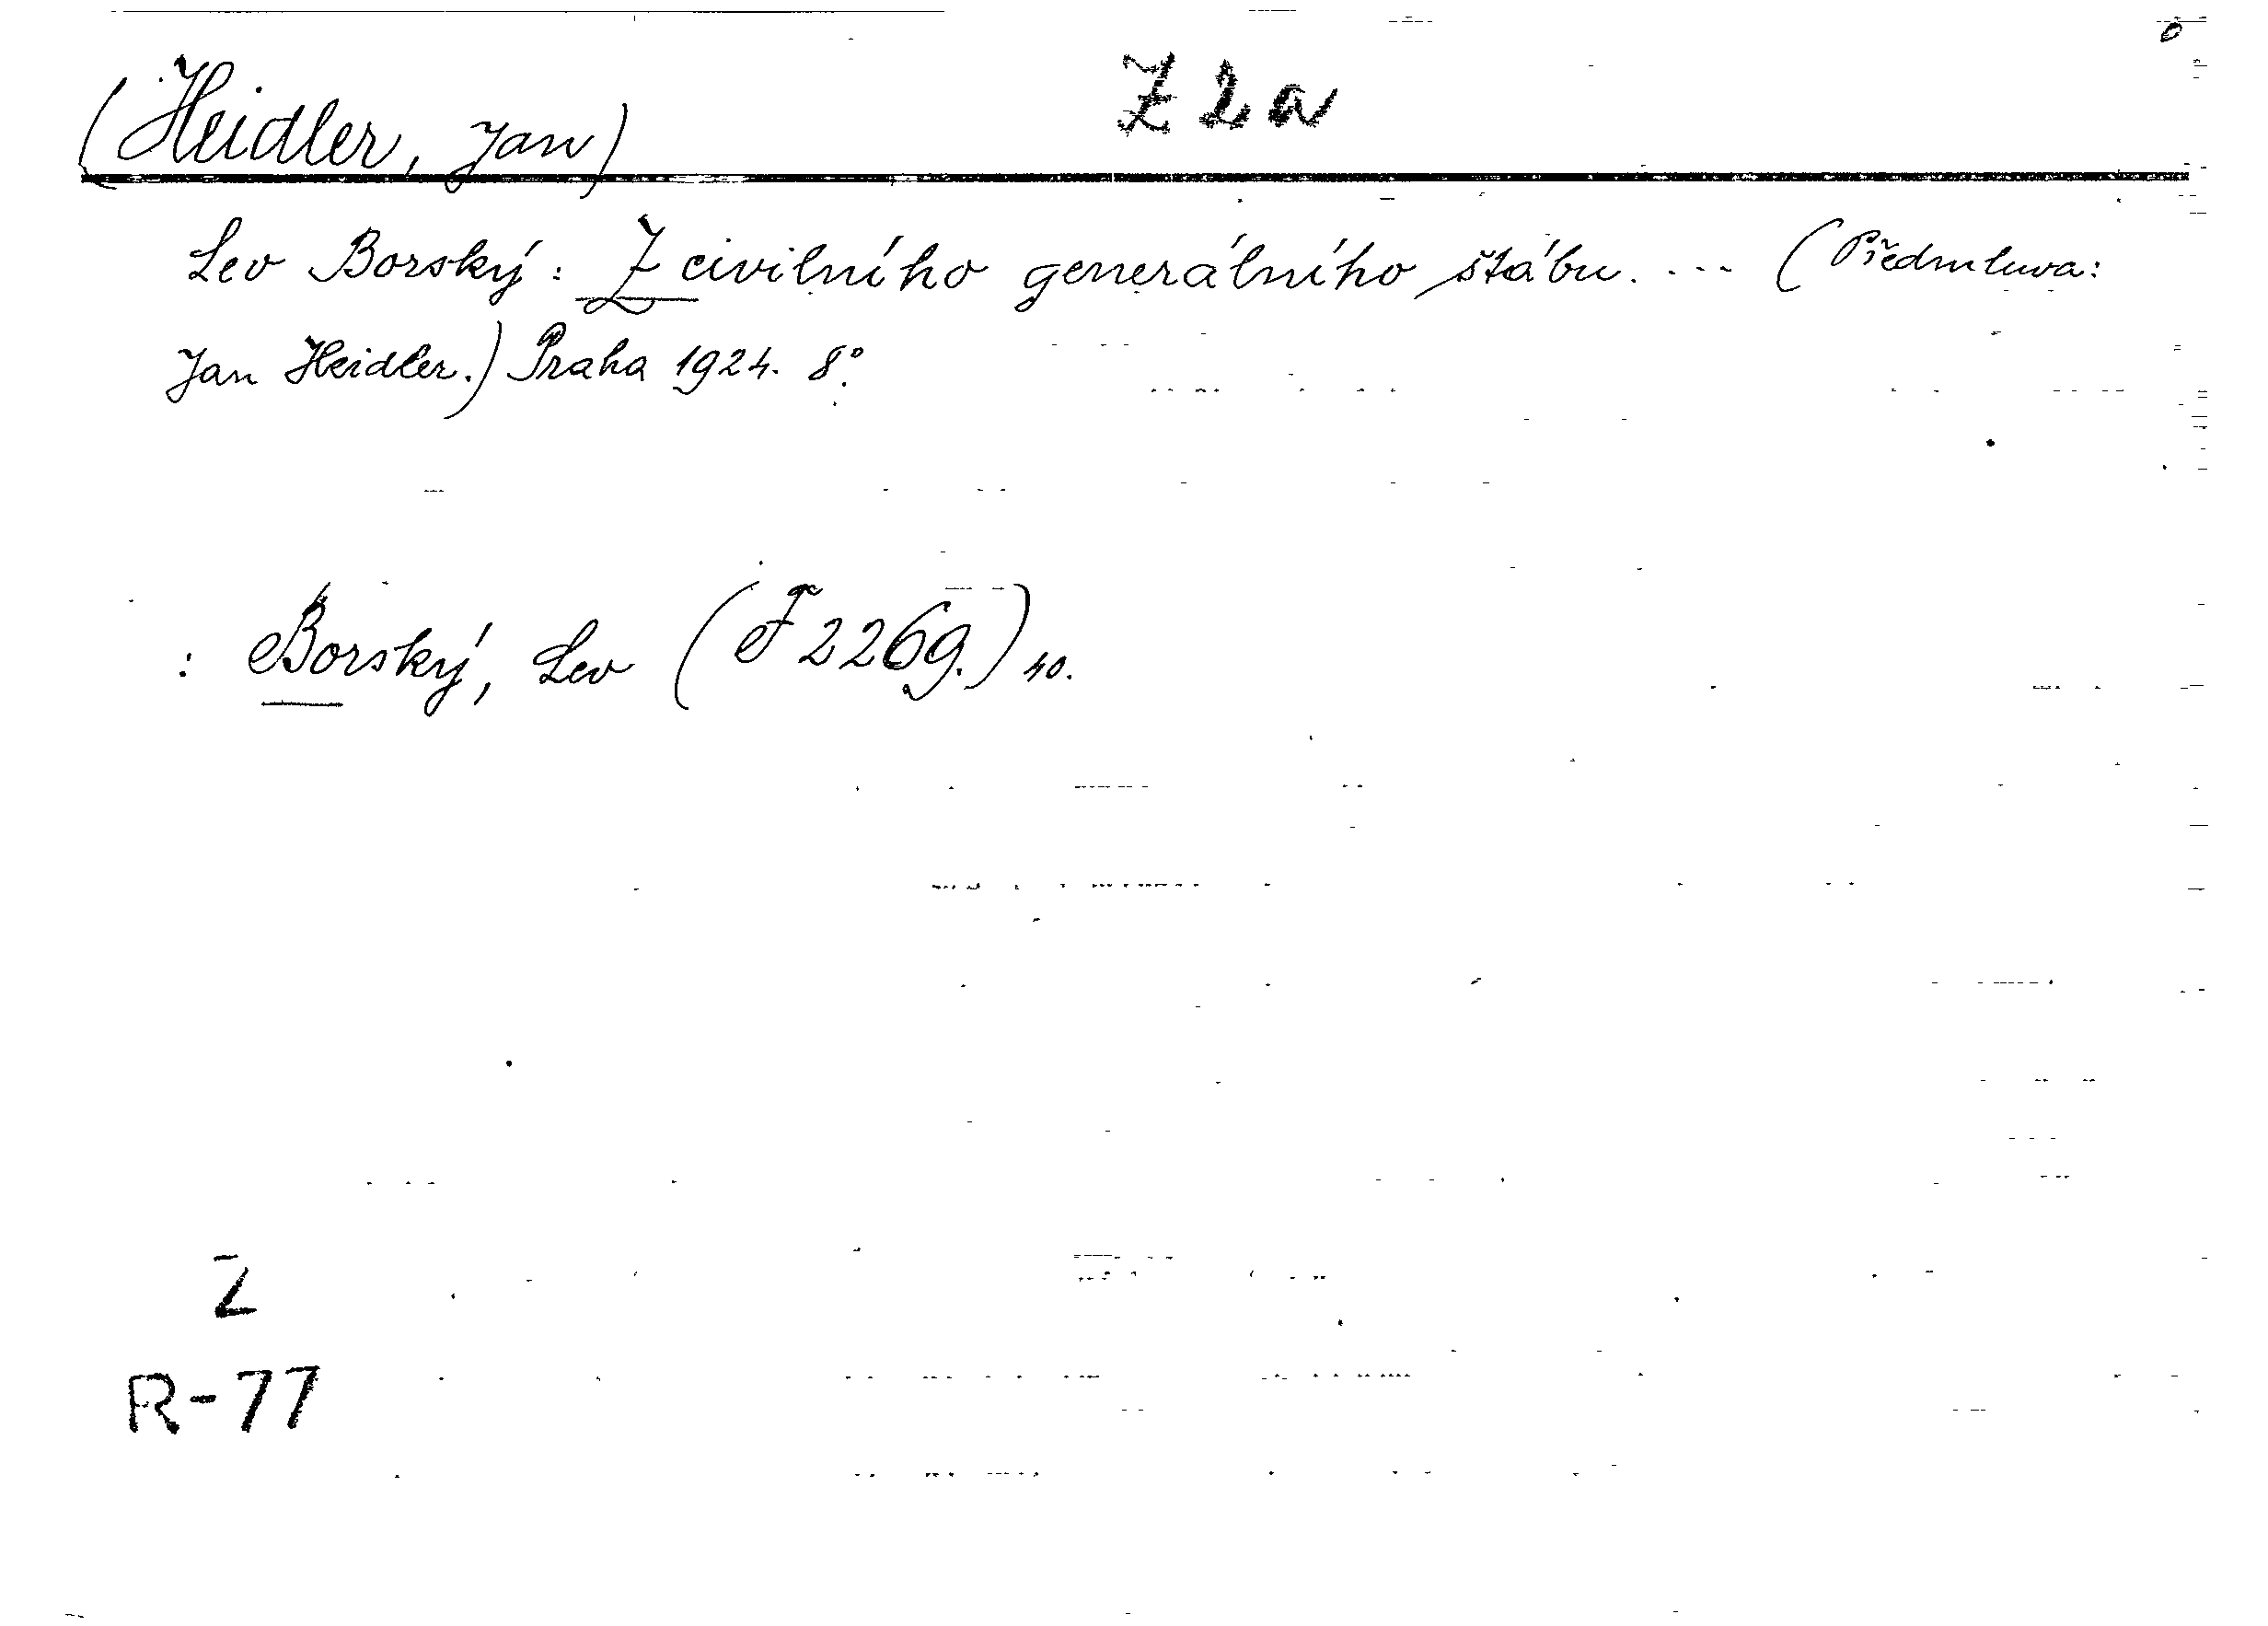 (Heidler, Jan) Z 2 a
Lev Borský: Z civilního generálního štábu. ... (Předmluva:
Jan Heidler.) Praha 1924. 8°.
: Borský, Lev (F 2269.) 40.
Z
R-77